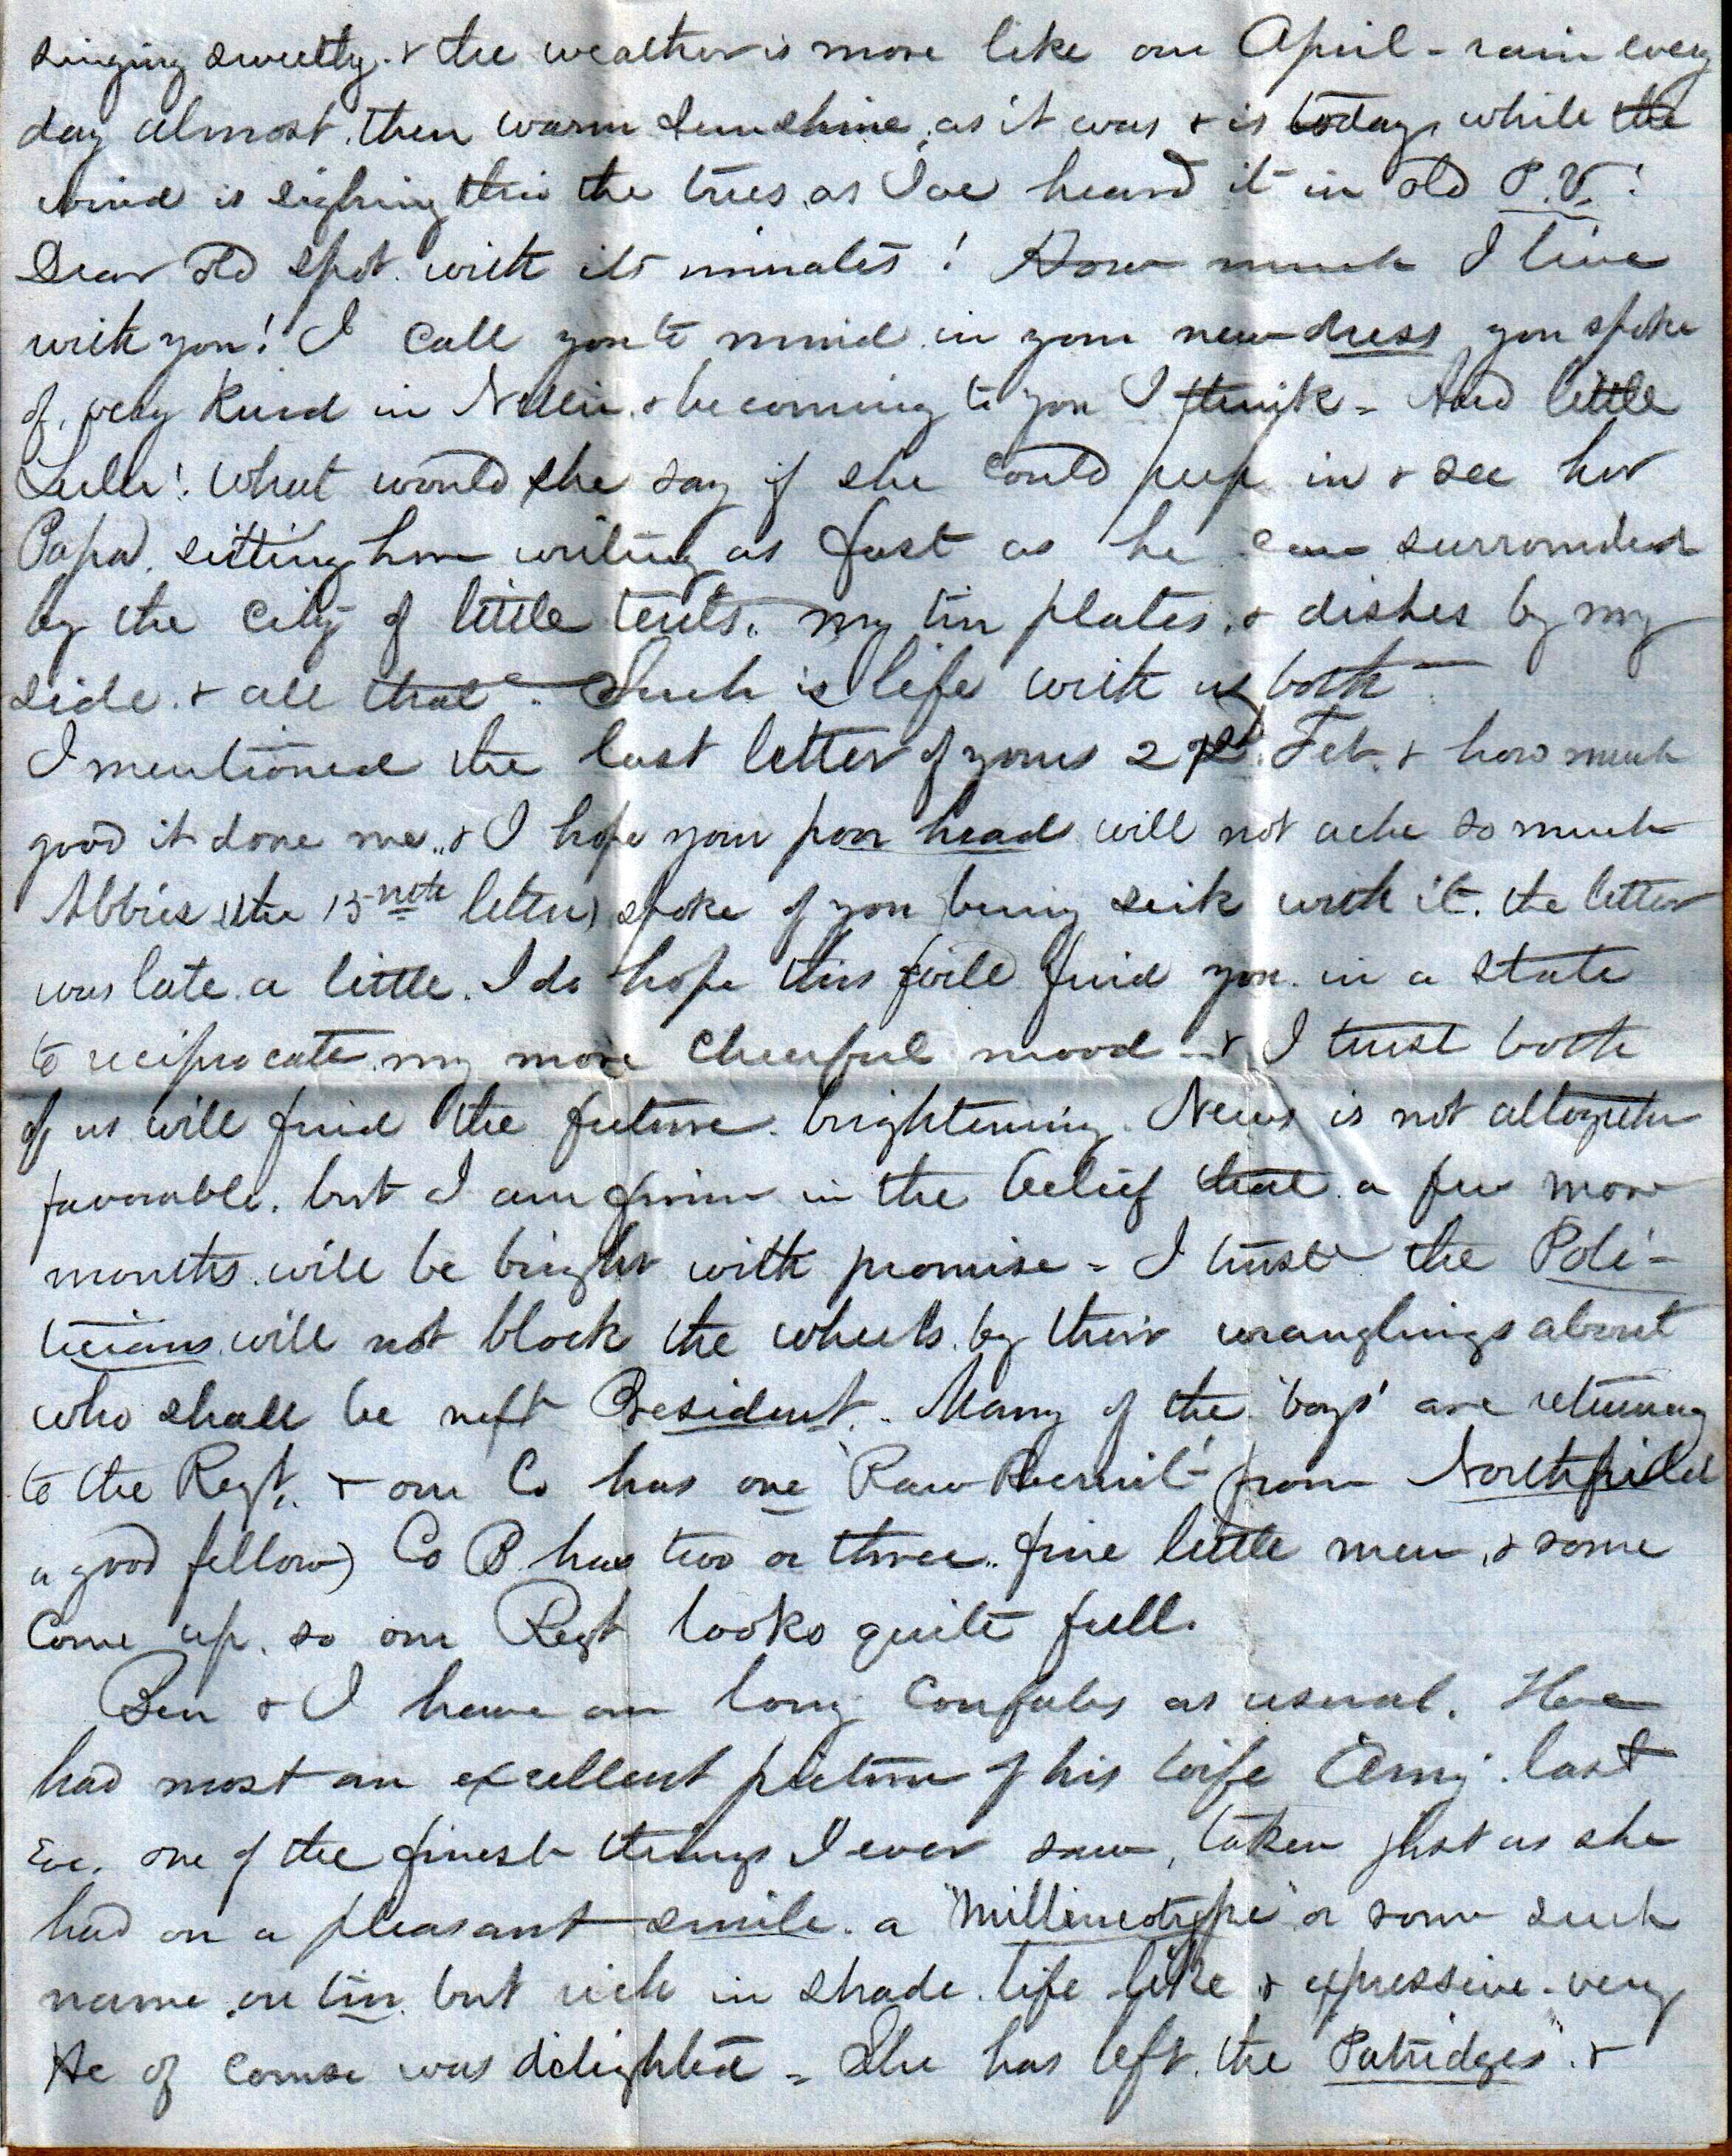 singing sweetly. & the weather is more like our April - rain every
day almost, then warm Sunshine, as it was & is today, while the
wind is sighing thro the trees, as I've heard it in old P.V.!
Dear old spot. with its inmates! How much I live
with you! I call you to mind in your new dress you spoke
of, very kind in Nellie, & becoming to you I think - And little
Lulu! what would she say if she could peep in & see her
Papa, sitting here writing as fast as he can surrounded
by the city of little tents, my tin plates, & dishes by my
side. & all that. Such is life with us both -
I mentioned the last letter of yours Feb. & how much
good it done me, & I hope your poor head will not ache so much
Abbies (the 15 note letter) spoke of you being sick with it. the letter
was late a little. I do hope this will find you in a state
to reciprocate my more cheerful mood - & I trust both
of us will find the future brightening. News is not altogether
favorable. but I am firm in the belief that a few more
months will be bright with promise - I trust the Poli-
ticians will not block the wheels by their wranglings about
who shall be next President. Many of the 'boys' are returning
to the Regt. & our Co has one 'Raw Recruit' from Northfield
a good fellow) Co B has two or three.. fine little men, & some
Come up. so our Regt looks quite full.
Ben & I have our long Confabs as usual. He
had most an excellent picture of his wife 'Amy' last
Eve. one of the finest things I ever saw, taken just as she
had on a pleasant smile. a "Millineotype" or some such
name on tin. but rich in shade. life like & expressive - very
He of course was delighted - She has left the "Patridges". &